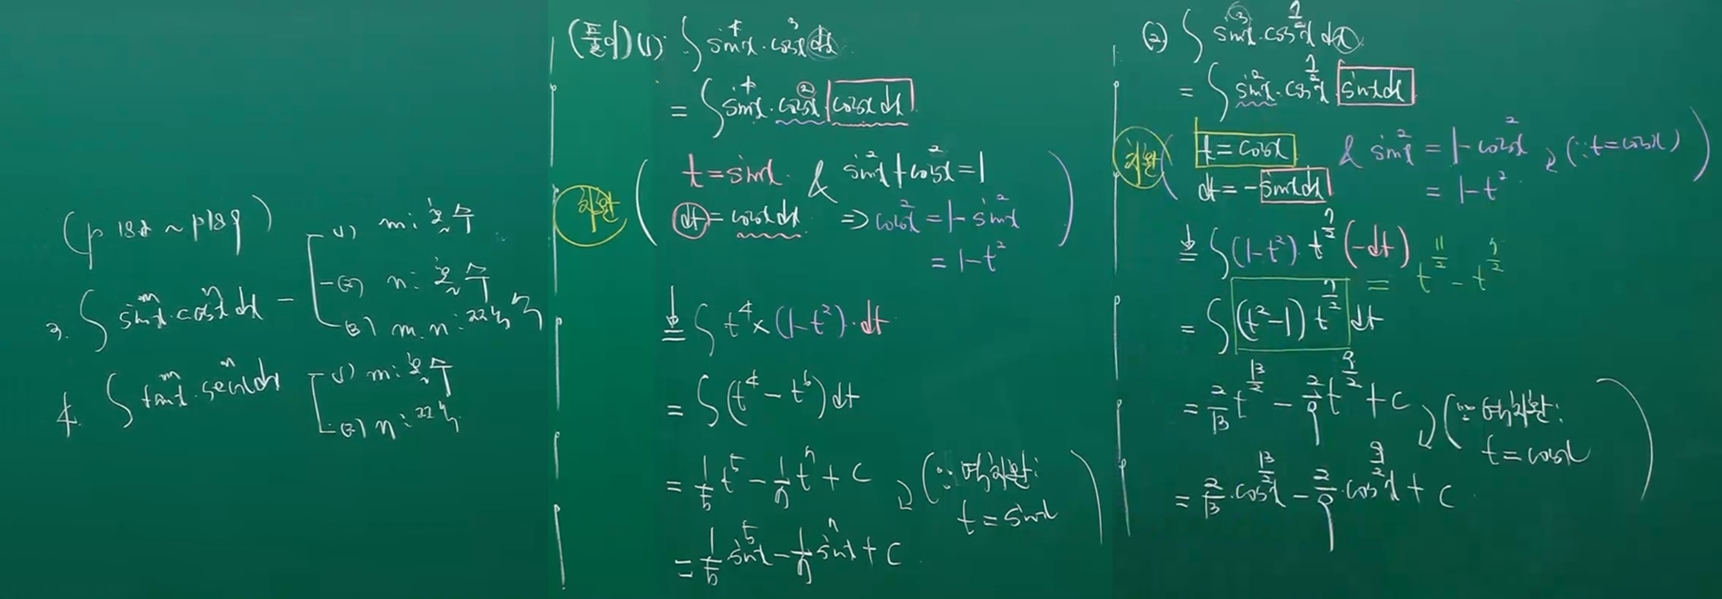 3. ∫ sin^m x · cos^n x dx
(1) m: 홀수
(2) n: 홀수
(3) m, n: 짝수
4. ∫ tan^m x · sec^n x dx
(1) m: 홀수
(2) n: 짝수
(1) ∫ sin^4 x · cos^3 x dx
= ∫ sin^4 x · cos^2 x · cos x dx
치환
t = sin x & sin^2 x + cos^2 x = 1
dt = cos x dx ⇒ cos^2 x = 1 - sin^2 x
= 1 - t^2
= ∫ t^4 × (1 - t^2) · dt
= ∫ (t^4 - t^6) dt
= 1/5 t^5 - 1/7 t^7 + C (∵ 역치환: t = sin x)
= 1/5 sin^5 x - 1/7 sin^7 x + C
(2) ∫ sin^3 x · cos^(7/2) x dx
= ∫ sin^2 x · cos^(7/2) x · sin x dx
치환
t = cos x & sin^2 x = 1 - cos^2 x (∵ t = cos x)
dt = - sin x dx = 1 - t^2
= ∫ (1 - t^2) · t^(7/2) (-dt)
= t^(11/2) - t^(7/2)
= ∫ (t^2 - 1) t^(7/2) dt
= 2/13 t^(13/2) - 2/9 t^(9/2) + C (∵ 역치환: t = cos x)
= 2/13 · cos^(13/2) x - 2/9 · cos^(9/2) x + C